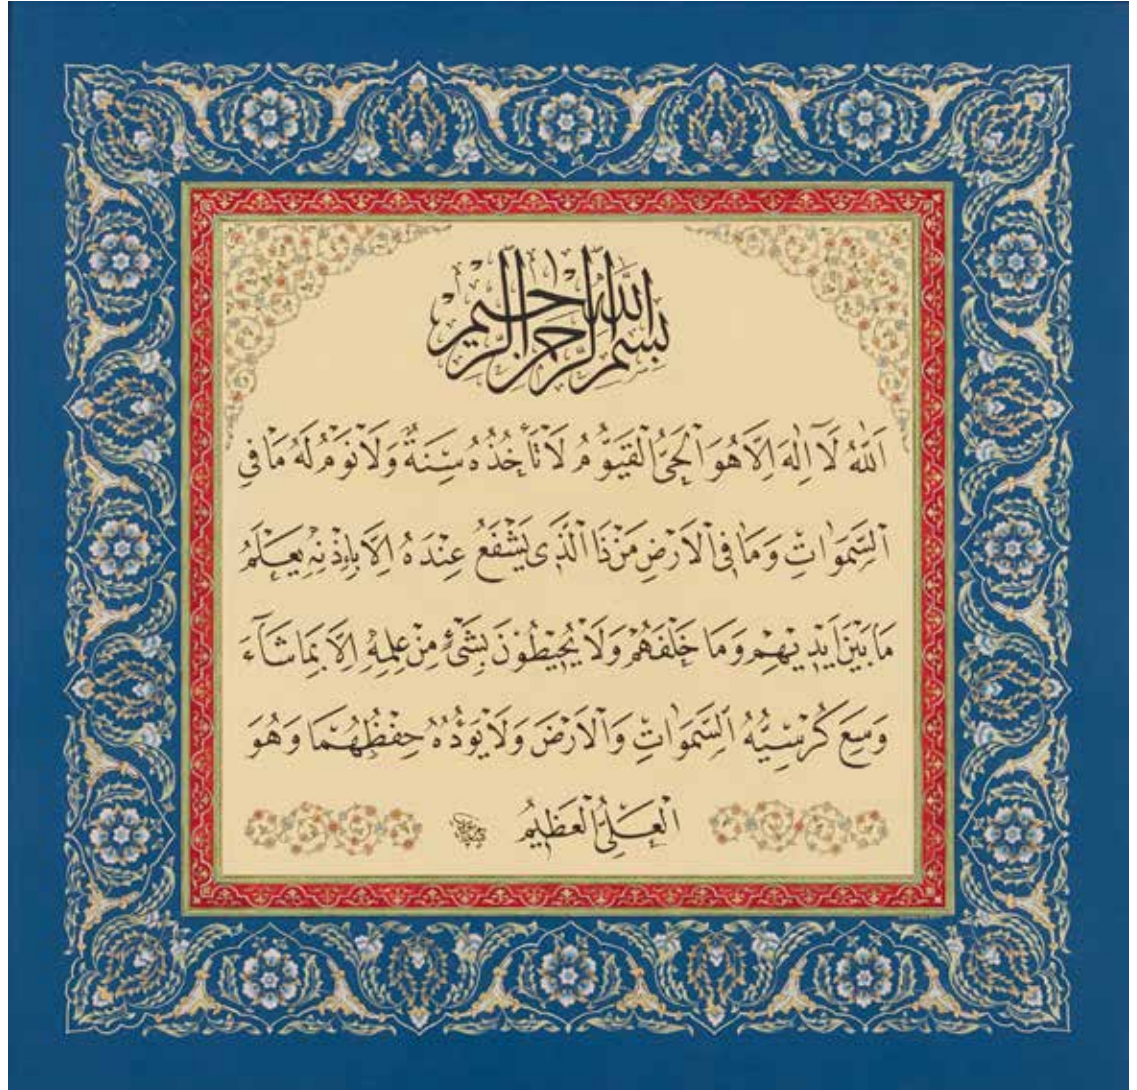 بِسْمِ اللهِ الرَّحْمٰنِ الرَّحِيمِ
اَللّٰهُ لَآ اِلٰهَ اِلَّا هُوَ اَلْحَيُّ الْقَيُّومُ لَا تَأْخُذُهُ سِنَةٌ وَلَا نَوْمٌ لَهُ مَا فِي
اَلسَّمٰوَاتِ وَمَا فِي الْاَرْضِ مَنْ ذَا الَّذِي يَشْفَعُ عِنْدَهُ اِلَّا بِاِذْنِهِ يَعْلَمُ
مَا بَيْنَ اَيْدِيهِمْ وَمَا خَلْفَهُمْ وَلَا يُحِيطُونَ بِشَيْءٍ مِنْ عِلْمِهِ اِلَّا بِمَا شَآءَ
وَسِعَ كُرْسِيُّهُ السَّمٰوَاتِ وَالْاَرْضَ وَلَا يَؤُدُهُ حِفْظُهُمَا وَهُوَ
الْعَلِيُّ الْعَظِيمُ